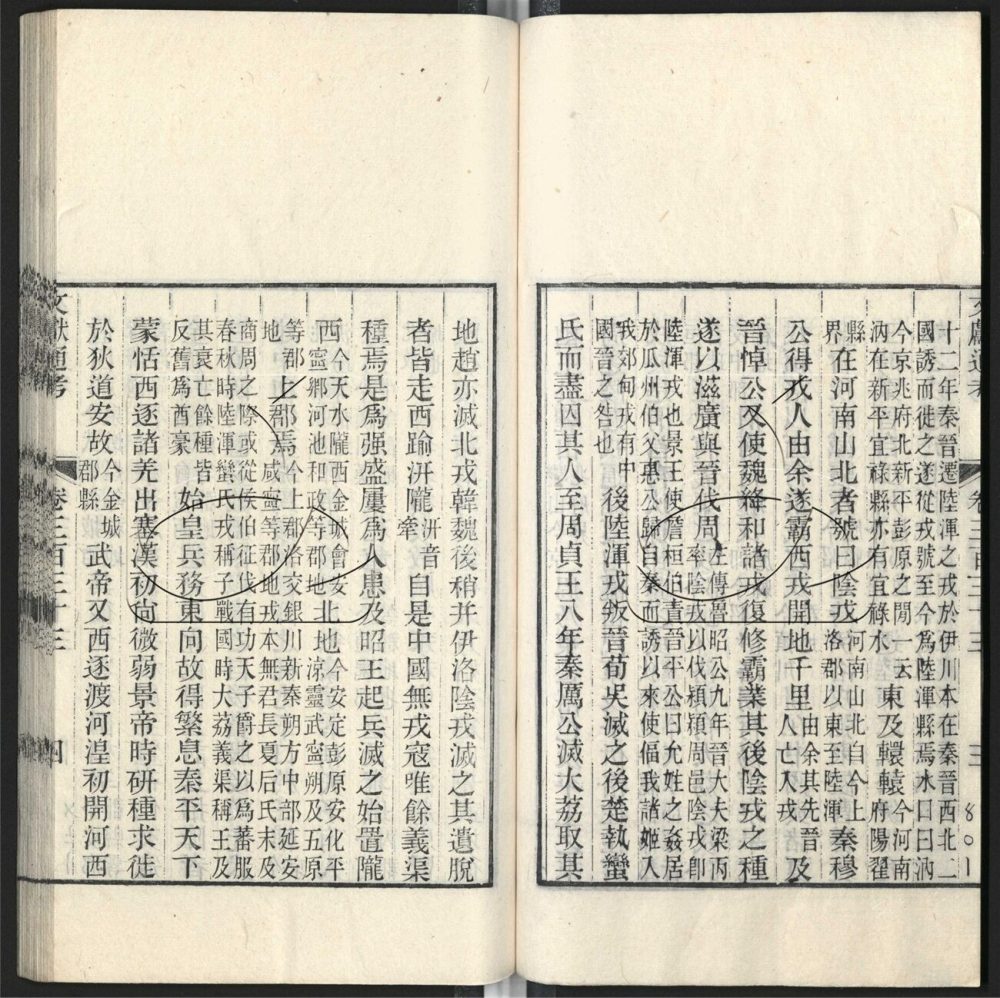 卷三百三十三 三 801
十二年秦晉遷陸渾之戎於伊川本在秦晉西北二
國誘而徙之遂從戎號至今爲陸渾縣焉水曰曰汭
今京兆府北新平彭原之閒一云
汭在新平宜祿縣亦有宜祿水
東及轘轅
今河南
府陽翟
縣
界
在河南山北者號曰陰戎
河南山北自今上
洛郡以東至陸渾
秦穆
公得戎人由余遂霸西戎開地千里
由余其先晉
人亡入戎
及
晉悼公又使魏絳和諸戎復修霸業其後陰戎之種
遂以滋廣與晉伐周
左傳魯昭公九年晉大夫梁丙
率陰戎以伐潁潁周邑陰戎卽
陸渾戎也景王使詹桓伯責晉平公曰允姓之姦居
於瓜州伯父惠公歸自秦而誘以來使偪我諸姬入
我郊甸戎有中
國晉之咎也
後陸渾戎叛晉荀吳滅之後楚執蠻
氏而盡囚其人至周貞王八年秦厲公滅大荔取其
地趙亦滅北戎韓魏後稍并伊洛陰戎滅之其遺脫
者皆走西踰汧隴
汧音
牽
自是中國無戎寇唯餘義渠
種焉是爲强盛屢爲人患及昭王起兵滅之始置隴
西
今天水隴西金城會安
寧鄉河池和政等郡地
北地
今安定彭原安化平
涼靈武寧朔及五原
等郡
地
上郡焉
今上郡洛交銀川新秦朔方中部延安
咸寧等郡地戎本無君長夏后氏末及
商周之際或從侯伯征伐有功天子爵之以爲蕃服
春秋時陸渾蠻氏戎稱子戰國時大荔義渠稱王及
其衰亡餘種皆
反舊爲酋豪
始皇兵務東向故得繁息秦平天下
蒙恬西逐諸羌出塞漢初尙微弱景帝時硏種求徙
於狄道安故
今金城
郡縣
武帝又西逐渡河湟初開河西
文獻通考 卷三百三十三 四